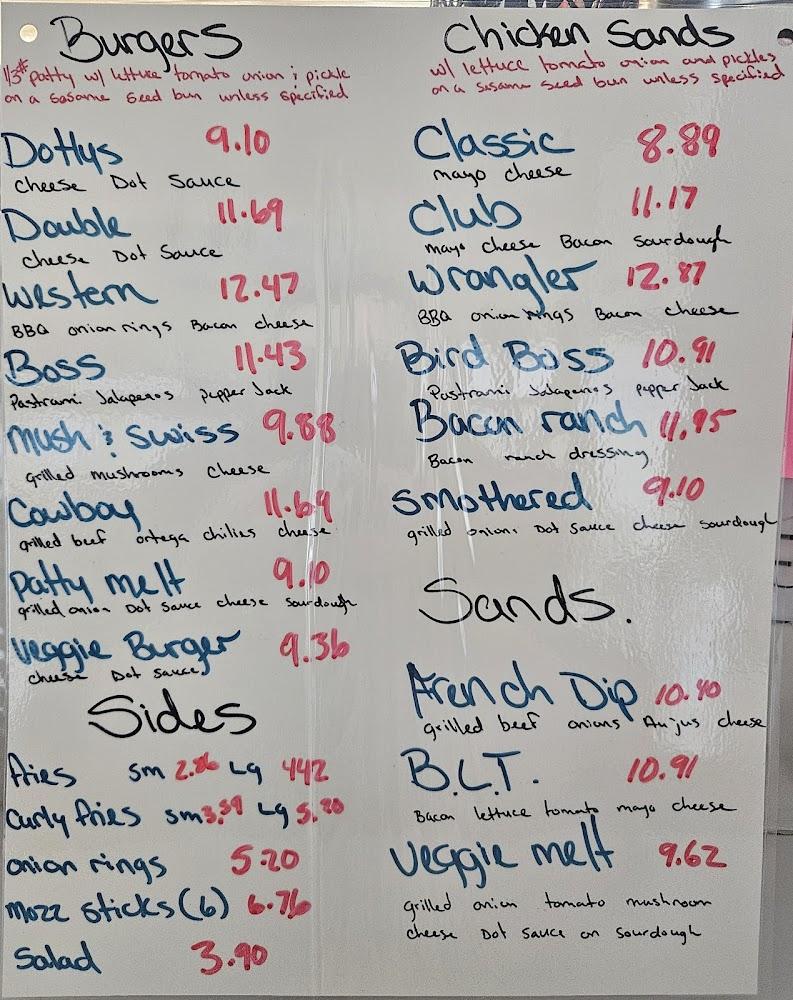 Burgers
1/3# patty w/ lettuce tomato onion & pickle
on a sesame seed bun unless specified
Dottys 9.10
cheese Dot Sauce
Double 11.69
cheese Dot Sauce
Western 12.47
BBQ onion rings Bacon cheese
Boss 11.43
Pastrami Jalapenos pepper Jack
mush & Swiss 9.88
grilled mushrooms cheese
Cowboy 11.69
grilled beef ortega chilies cheese
patty melt 9.10
grilled onion Dot Sauce cheese Sourdough
Veggie Burger 9.36
cheese Dot Sauce
Sides
fries sm 2.86 Lg 442
Curly fries sm 3.59 Lg 5.20
onion rings 5.20
mozz sticks (6) 6.76
Salad 3.90
Chicken Sands
w/ lettuce tomato onion and pickles
on a sesame seed bun unless specified
Classic 8.89
mayo cheese
Club 11.17
mayo cheese Bacon Sourdough
Wrangler 12.87
BBQ onion rings Bacon cheese
Bird Boss 10.91
Pastrami Jalapenos pepper Jack
Bacon ranch 11.95
Bacon ranch dressing
Smothered 9.10
grilled onions Dot Sauce cheese Sourdough
Sands.
French Dip 10.40
grilled beef onions Aujus cheese
B.L.T. 10.91
Bacon lettuce tomato mayo cheese
Veggie melt 9.62
grilled onion tomato mushroom
cheese Dot Sauce on Sourdough